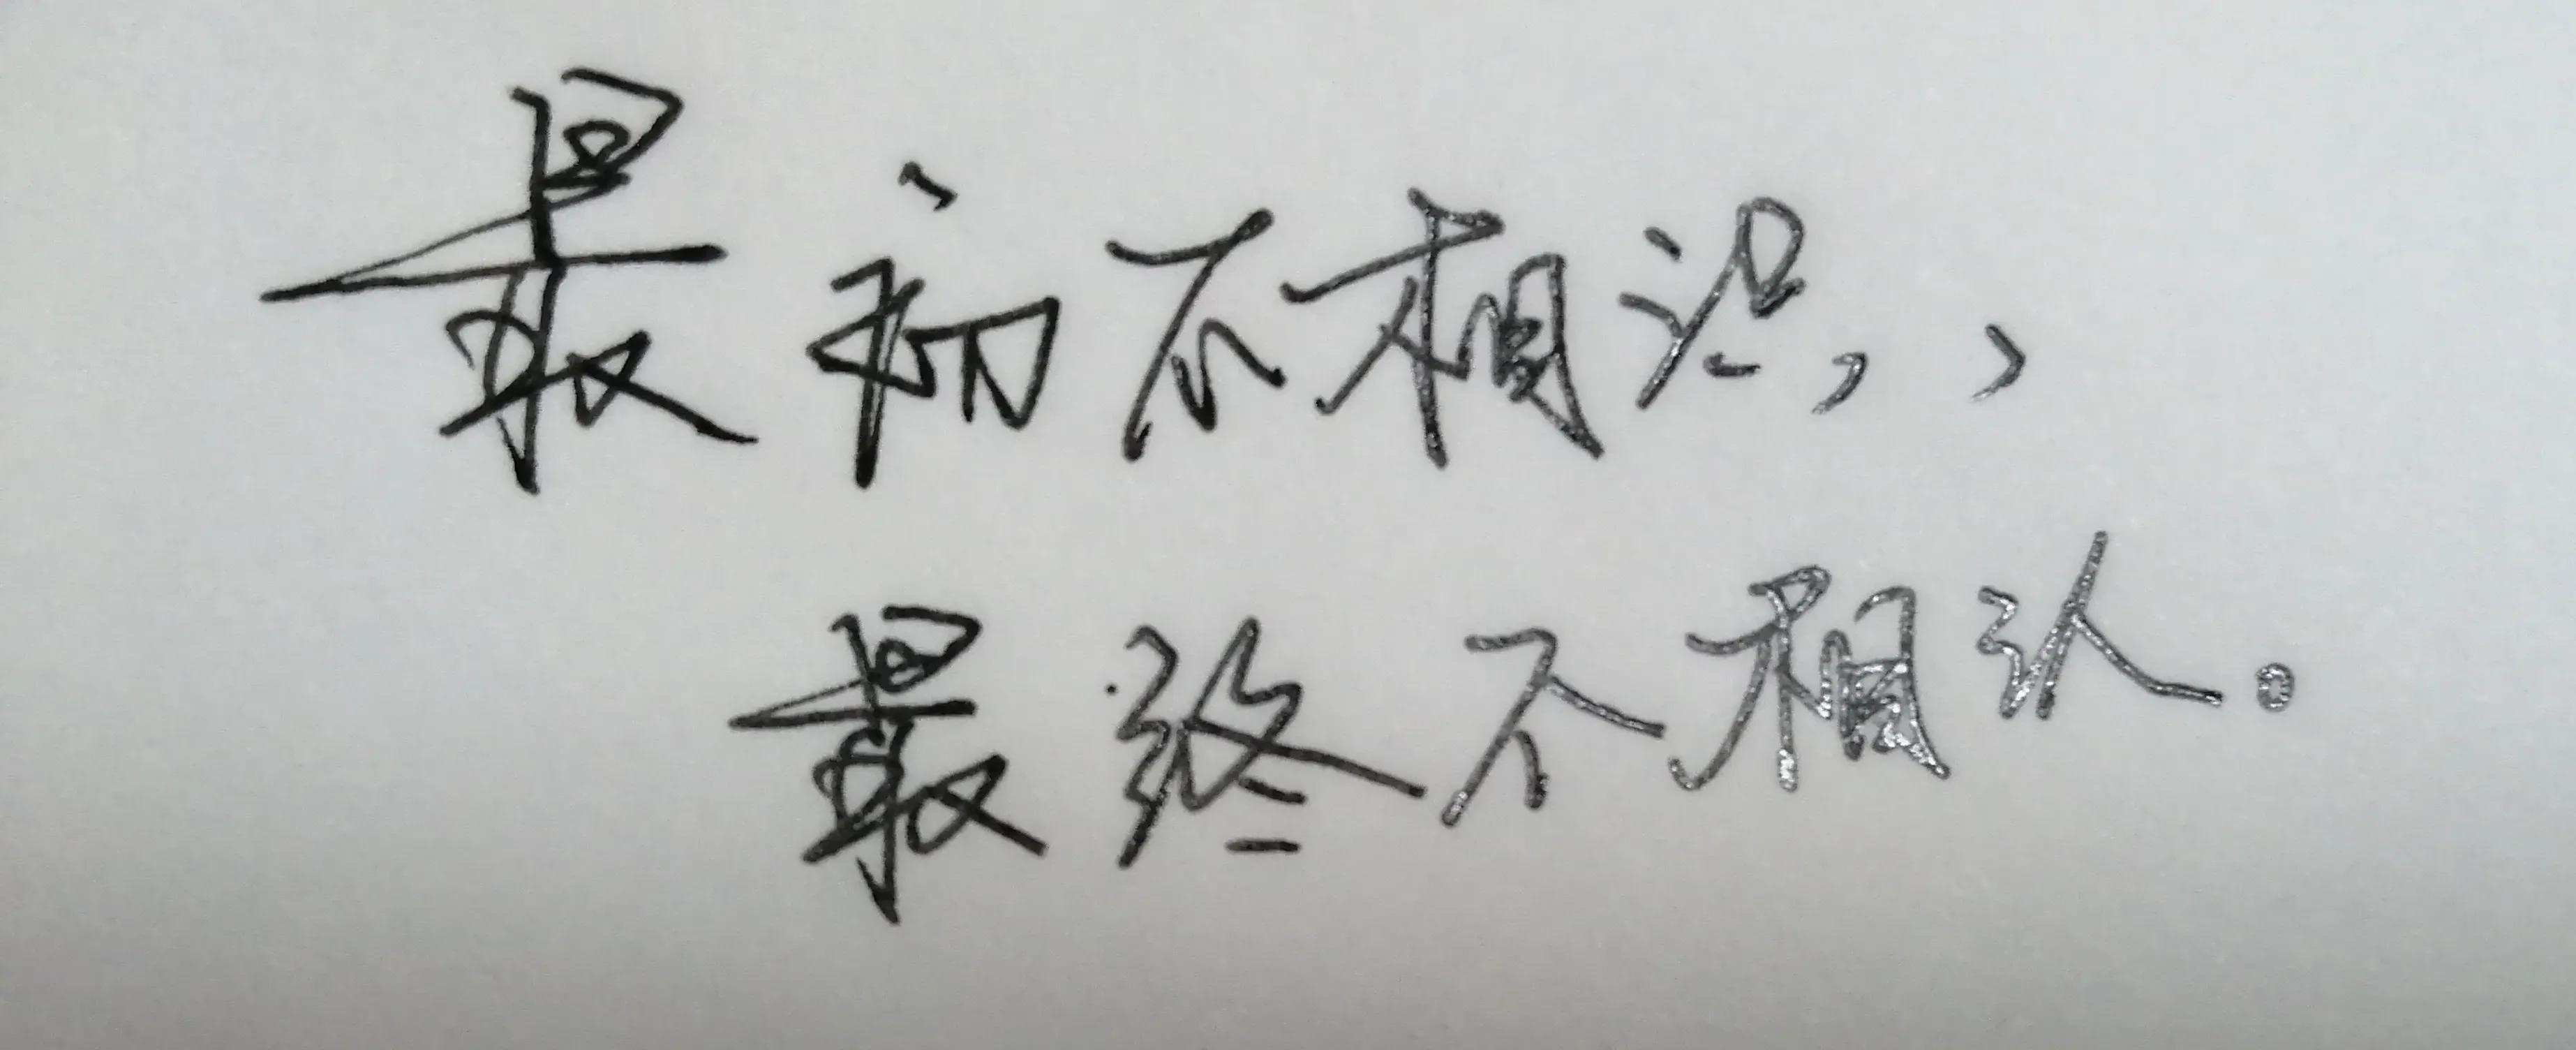 最初不相识，，
最终不相认。